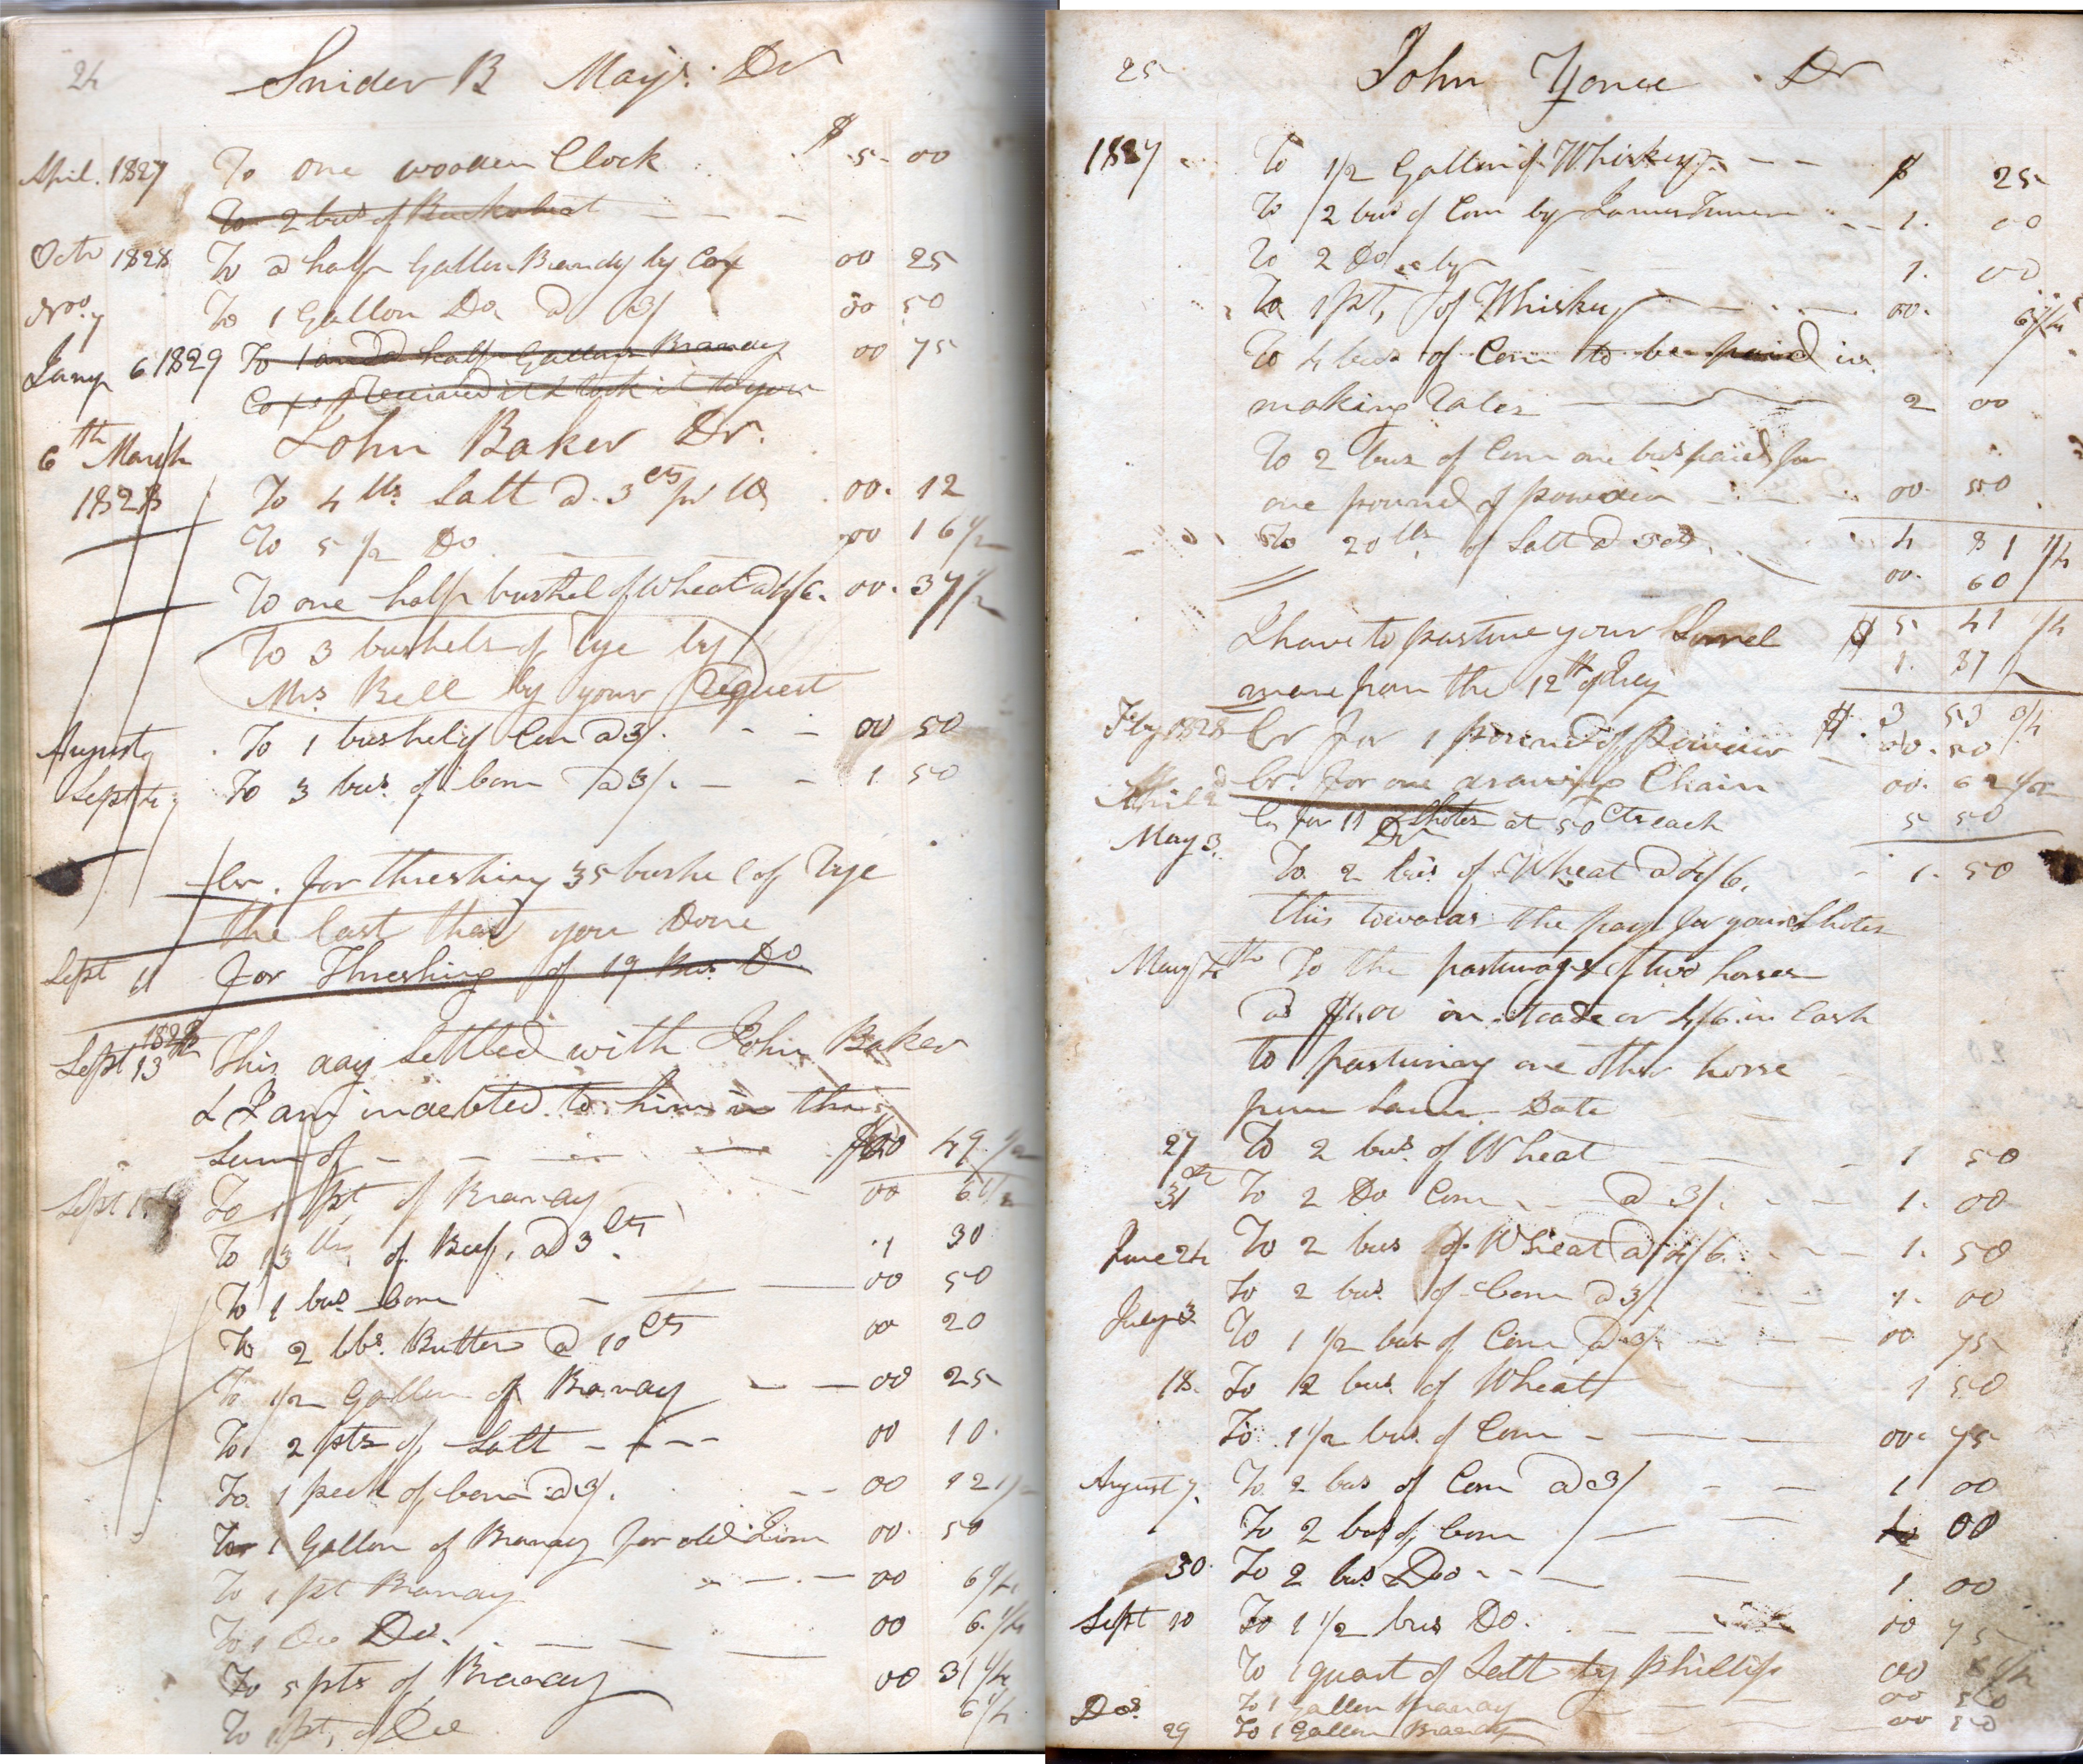 24 Snider B Mays. Dr
April. 1827 To one wooden Clock $ 5- 00
To 2 bus of Buckwheat
Octr 1828 To a half Gallon Brandy by Cox 00 25
Nov. 7 To 1 Gallon Do a 3/ 00 50
Jany 6 1829 To 1 and a half Gallons Brandy 00 75
Cox received it & took it to you
John Baker Dr.
6th March
1828 To 4 lbs. Salt a. 3cts pr lb 00. 12
To 5 1/2 Do 00 16 1/2
To one half bushel of Wheat a 4/6. 00. 37 1/2
To 3 bushels of Rye by
Mrs Bell by your Request
August To 1 bushel of Corn a 3/. 00 50
Sept To 3 bus. of Corn a 3/. 1 50
Cr. for threshing 35 bushel of Rye
the last that you Done
Sept 11 for Threshing of 19 Bus. Do
1828
Sept 13th This day Settled with John Baker
& I am indebted to him in the
Sum of 49 1/2
Sept To 1 pt of Brandy 00 6 1/4
To 13 lbs, of Beef, a 3cts. .1 30
To 1 bus. Corn 00 50
To 2 lbs. Butter a 10 cts 00 20
To 1/2 Gallon of Brandy 00 25
To 2 pts of Salt 00 10.
To 1 peck of Corn a 3/. 00 12 1/2
To 1 Gallon of Brandy for old 00. 50
To 1 pt Brandy 00 6 1/4
To 1 Do Do. 00 6. 1/4
To 5 pts of Brandy 00 31 1/4
To 1 pt, of Do 6 1/4
25 John Yonce Dr
1827 To 1/2 Gallon of Whiskey $ 25
To 2 bus of Corn by James Turner 1. 00
To 2 Do by 1. 00
To 1 pt, of Whiskey 00. 6 1/4
To 4 bus of Corn to be paid in
making Rales 2 00
To 2 bus of Corn one bus paid for
one pound of powder 00. 50
To 20 lbs, of Salt a 3cts, 4 81 1/4
00. 60
I have to pasture your Sorrel $ 5 41 1/4
mare from the 12th of 1. 87 1/2
$. 3 53 3/4
Feby 1828 Cr for 1 pound of powder 00. 50
Cr. for one drawing Chain 00. 62 1/2
Cr for 11 Shotes at 50 Cts each 5 50
Dr
May 3. To 2 bus of Wheat a 4/6. 1. 50
this towards the pay for your Shotes
May th To the pasturage of two horses
a $1.00 in trade or 4/6. in Cash
to pasturing one other horse
from same Date
27 To 2 bus. of Wheat 1 50
31st To 2 Do Corn a 3/. 1. 00
June 24 To 2 bus of Wheat a 4/6. 1. 50
To 2 bus. of Corn a 3/. 1. 00
July 3 To 1 1/2 bus of Corn a 3/. 00 75
18. To 2 bus. of Wheat 1 50
To 1 1/2 bus. of Corn 00. 75
August 7. To 2 bus of Corn a 3/ 1 00
To 2 bus of Corn 00
30. To 2 bus. Do 1 00
Sept 10 To 1 1/2 bus Do. 00 75
To 1 quart of Salt by Phillip 00
Do. To 1 Gallon Brandy 00 50
29 To 1 Gallon Brandy 00 50